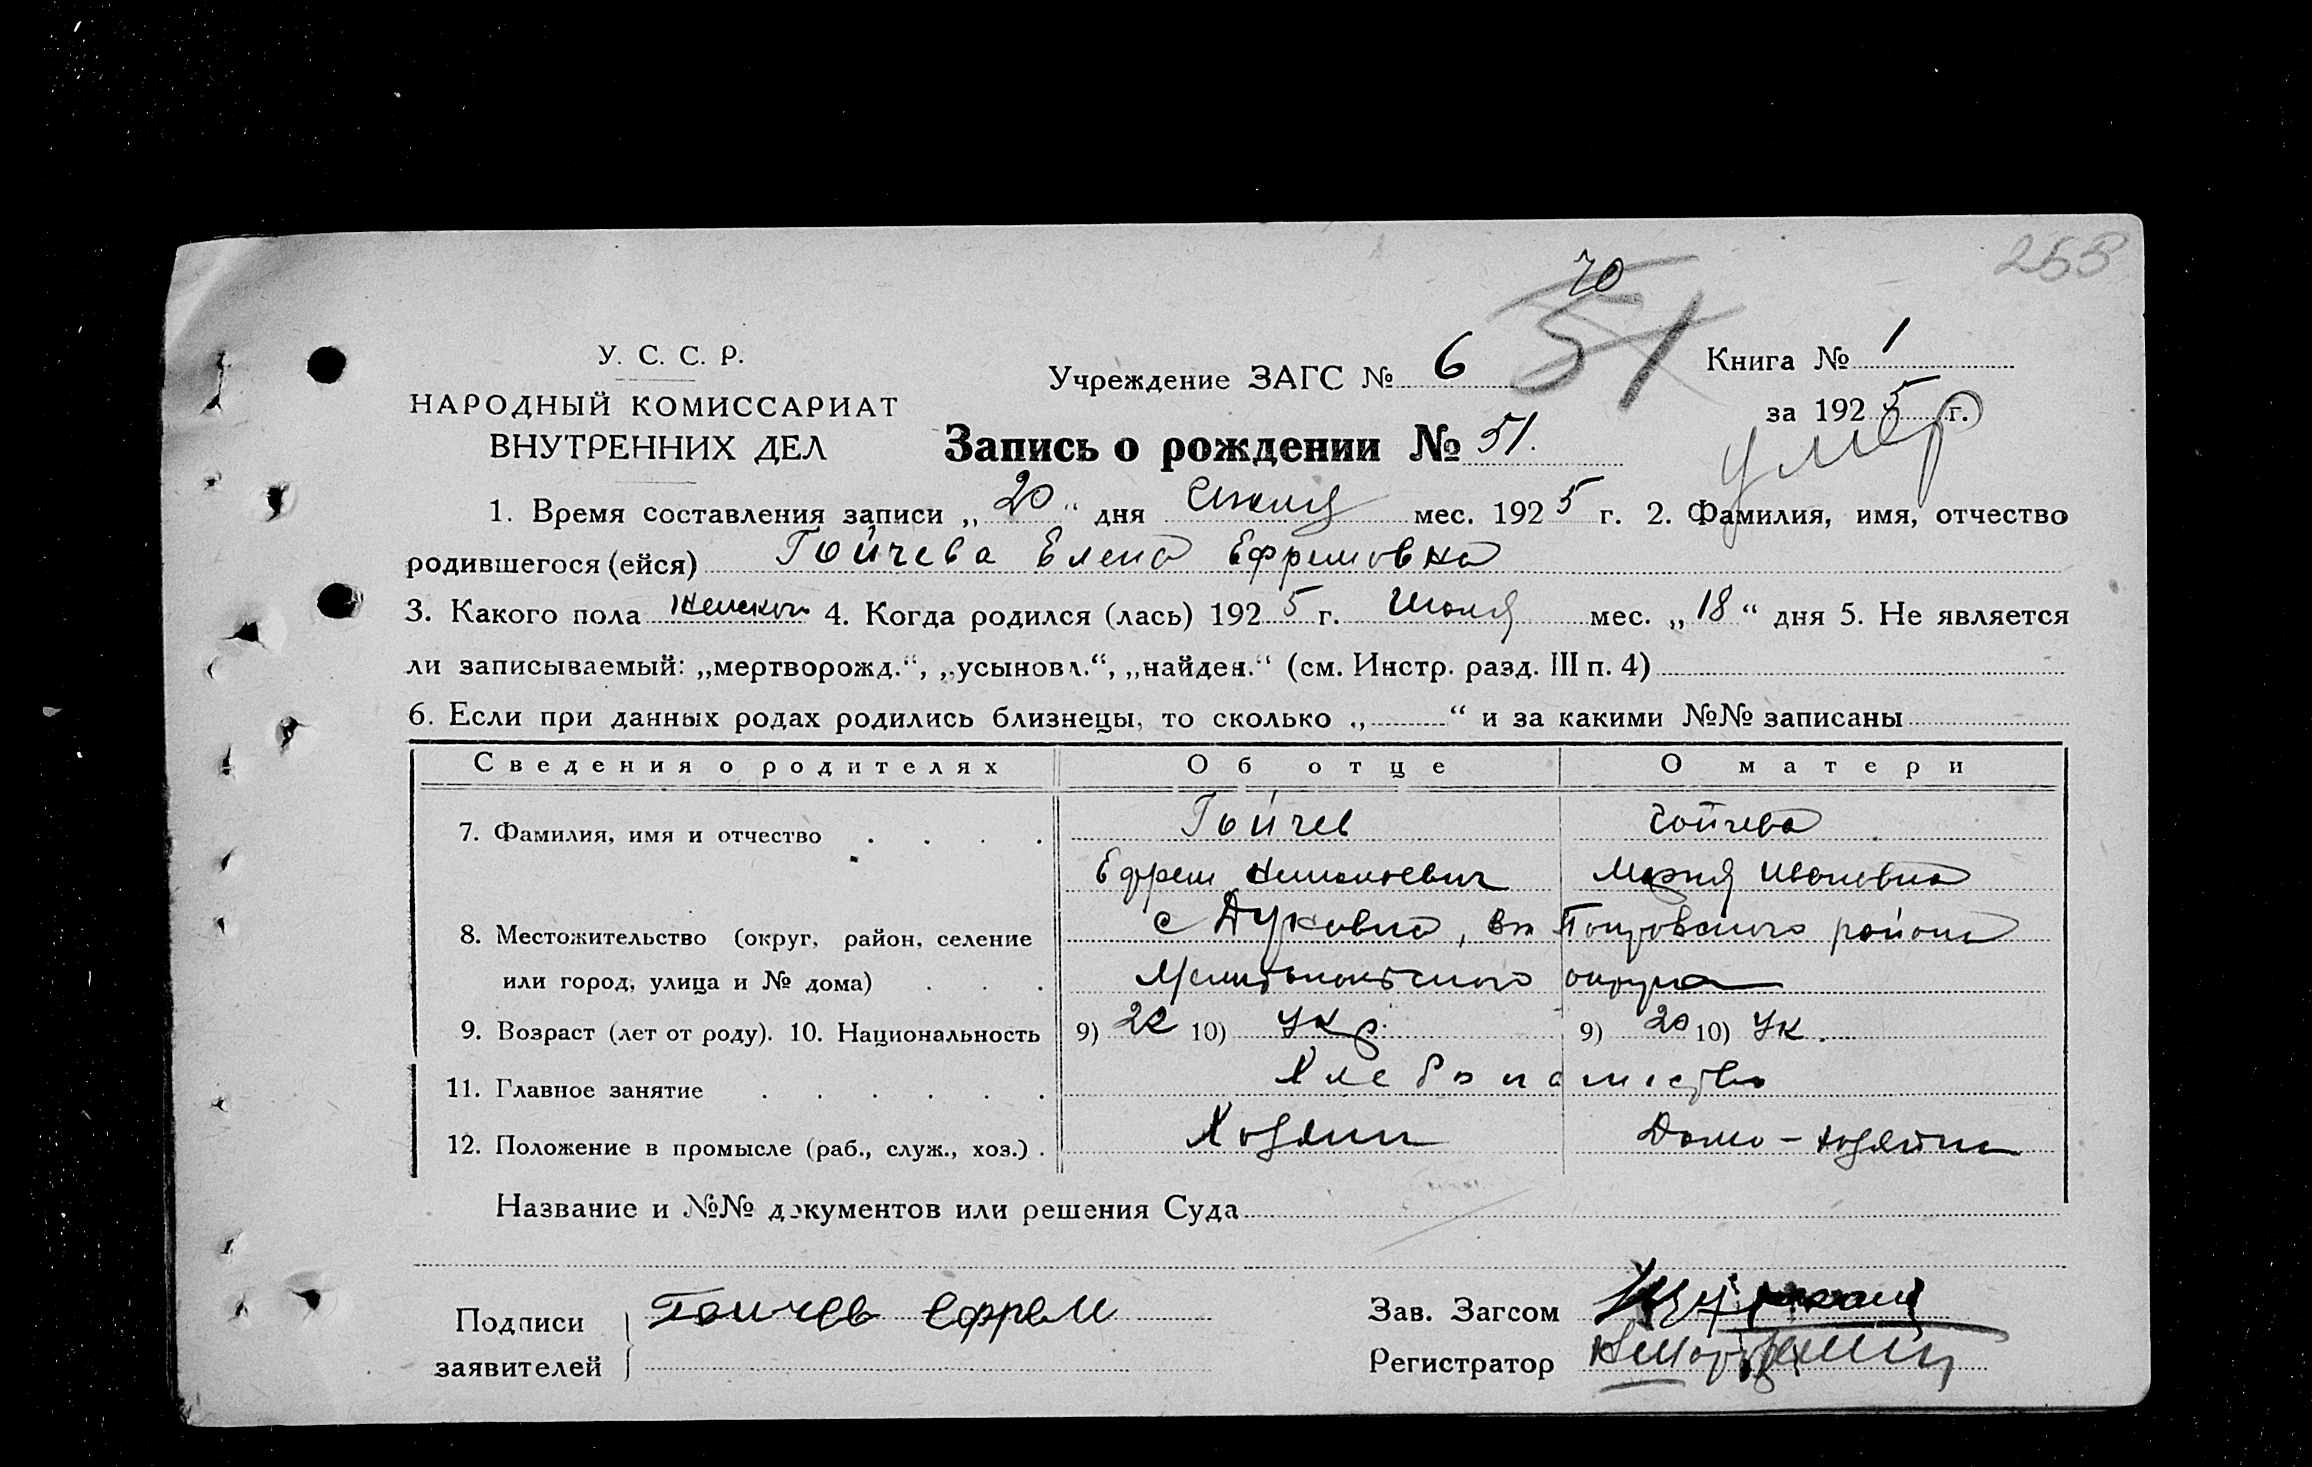 253
70
51
У. С. С. Р.
НАРОДНЫЙ КОМИССАРИАТ
ВНУТРЕННИХ ДЕЛ
Учреждение ЗАГС № 6
Книга № 1
за 1925 г.
умер
Запись о рождении № 51.
1. Время составления записи „20“ дня Июля мес. 1925 г. 2. Фамилия, имя, отчество
родившегося (ейся) Гойчева Елена Ефремовна
3. Какого пола женском 4. Когда родился (лась) 1925 г. Июля мес. „18“ дня 5. Не является
ли записываемый: „мертворожд.“, „усыновл.“, „найден.“ (см. Инстр. разд. III п. 4)
6. Если при данных родах родились близнецы, то сколько „ “ и за какими №№ записаны
Сведения о родителях Об отце О матери
7. Фамилия, имя и отчество Гойчев Гойчева
Ефрем Мария Ивановна
8. Местожительство (округ, район, селение с района
или город, улица и № дома) Мелитопольского округа
9. Возраст (лет от роду). 10. Национальность 9) 22 10) Укр. 9) 20 10) Ук.
11. Главное занятие Хлебопашество
12. Положение в промысле (раб., служ., хоз.) Хозяин Домо-хозяйка
Название и №№ документов или решения Суда
Подписи Гойчев Ефрем Зав. Загсом
заявителей Регистратор